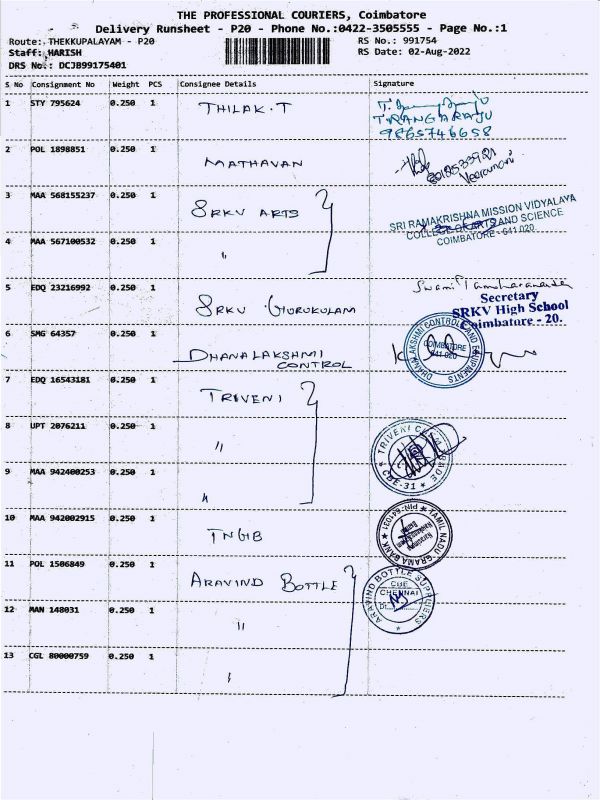 THE PROFESSIONAL COURIERS, Coimbatore
Delivery Runsheet - P20 - Phone No.:0422-3505555 - Page No.:1
Route: THEKKUPALAYAM - P20
RS No.: 991754
Staff: HARISH
RS Date: 02-Aug-2022
DRS No.: DCJB99175401
S No Consignment No Weight PCS Consignee Details Signature
1 STY 795624 0.250 1 THILAK.T
T. RANGARAJU
9865746658
2 POL 1898851 0.250 1 MATHAVAN
Veeramani
3 MAA 568155237 0.250 1 SRKV ARTS
SRI RAMAKRISHNA MISSION VIDYALAYA
COLLEGE OF ARTS AND SCIENCE
COIMBATORE - 641 020
4 MAA 567100532 0.250 1 "
5 EDQ 23216992 0.250 1 SRKV GURUKULAM
Swami
Secretary
SRKV High School
Coimbatore - 20.
6 SMG 64357 0.250 1 DHANALAKSHMI
CONTROL
DHANALAKSHMI CONTROLS AND EQUIPMENTS
COIMBATORE
641 020
7 EDQ 16543181 0.250 1 TRIVENI
8 UPT 2076211 0.250 1 "
TRIVENI
CBE-31
9 MAA 942400253 0.250 1 "
10 MAA 942002915 0.250 1 TNGB
TAMIL NADU GRAMA BANK
PIN-641031
11 POL 1506849 0.250 1 ARAVIND BOTTLE
ARAVIND BOTTLE SUPPLIERS
CBE
CHENNAI
12 MAN 148031 0.250 1 "
13 CGL 80000759 0.250 1 "